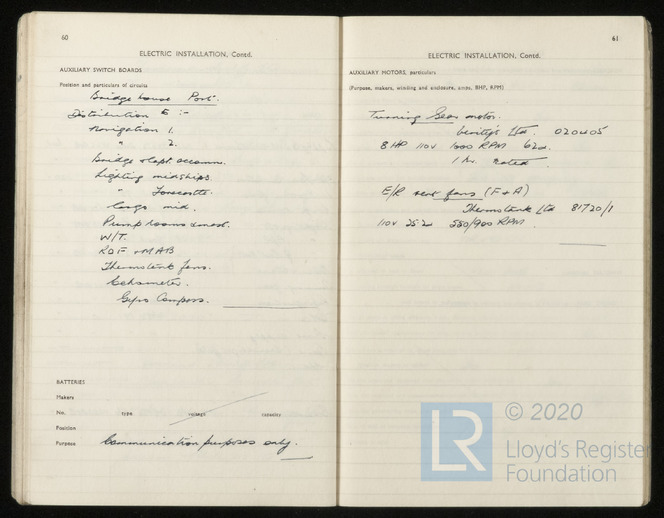 60
ELECTRIC INSTALLATION, Contd.
AUXILIARY SWITCH BOARDS
Position and particulars of circuits
Bridge house Port.
Distribution E :-
Navigation 1.
" 2.
Bridge & Capt. accomm.
Lighting midships
" Forecastle.
Cargo mid.
Pump rooms
W/T.
RDF
Thermotank fans.
Echometer.
Gyro Compass.
BATTERIES
Makers
No. type voltage capacity
Position
Purpose Communication purposes only.
61
ELECTRIC INSTALLATION, Contd.
AUXILIARY MOTORS, particulars
(Purpose, makers, winding and enclosure, amps, BHP, RPM)
Turning Gear motor.
Ltd. 020405
8 HP 110v 1000 RPM 62a.
1 hr. rated.
E/R vent fans (F & A)
Thermotank Ltd 81720/1
110v 25.2 550/900 RPM
LR © 2020
Lloyd's Register
Foundation